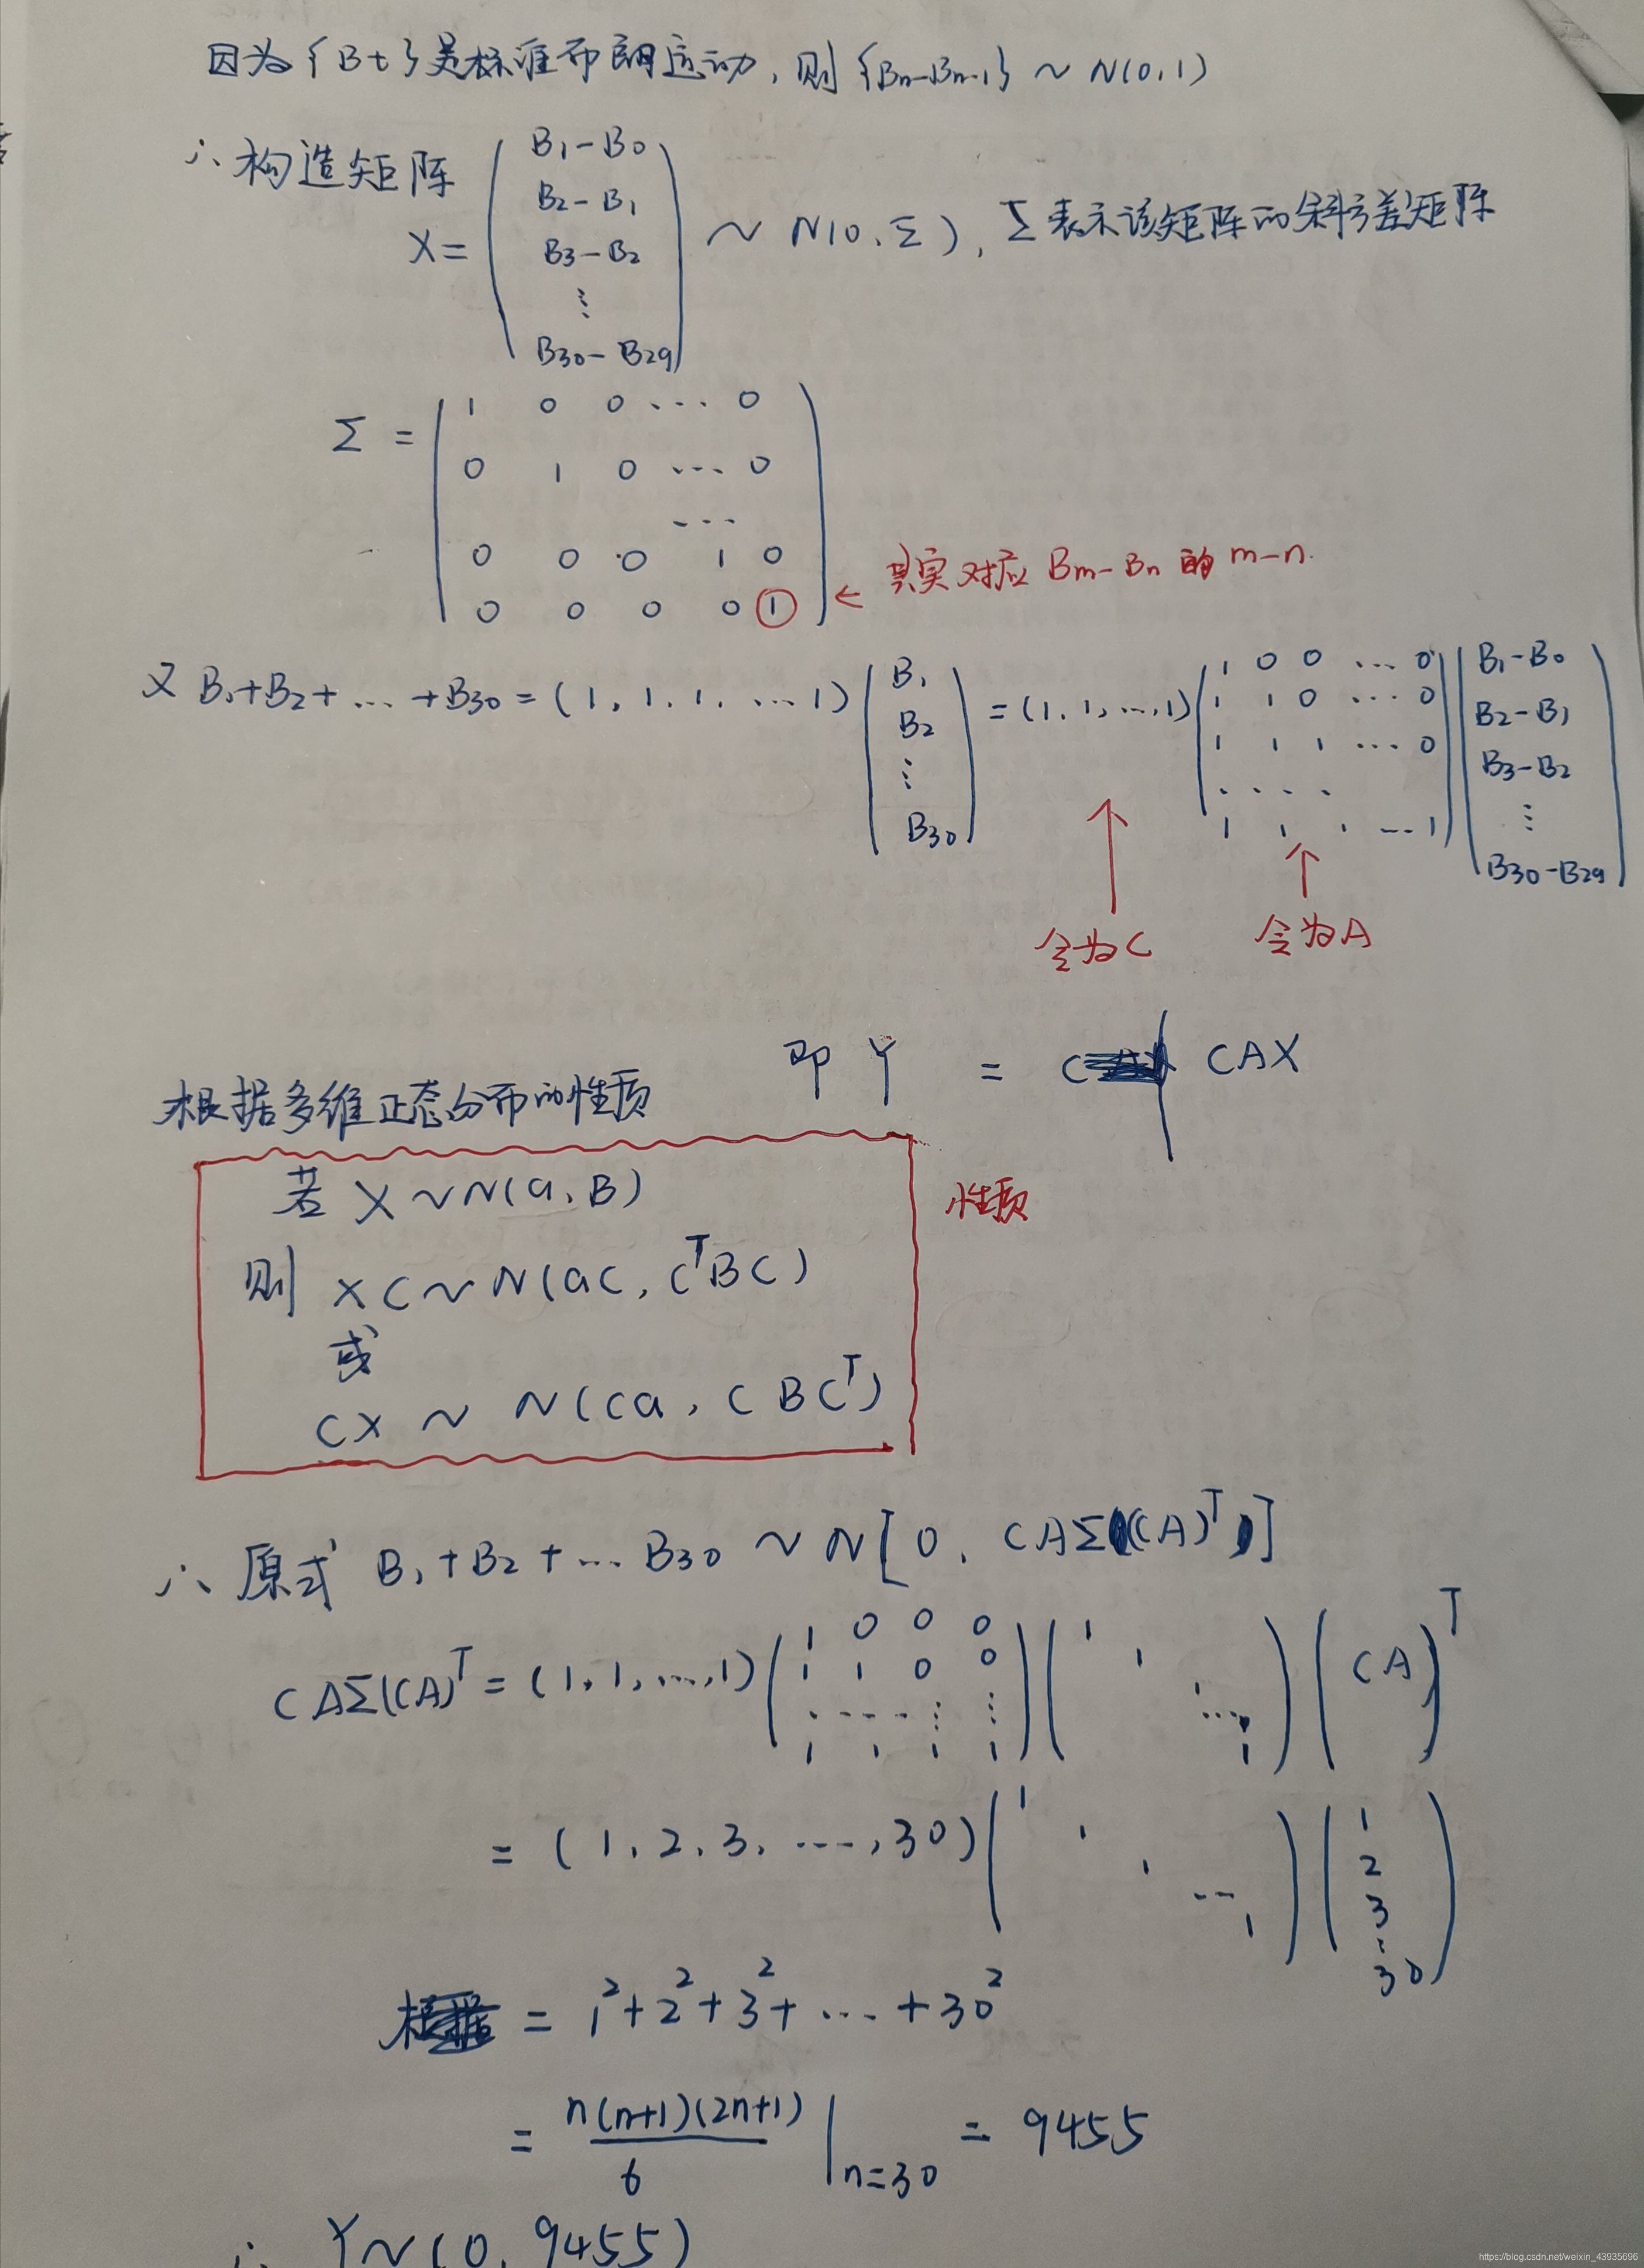 因为{Bt}是标准布朗运动，则{Bn-Bn-1} ~ N(0,1)
∴ 构造矩阵
X = (B1-B0 B2-B1 B3-B2 ⋮ B30-B29) ~ N(0, Σ), Σ表示该矩阵的协方差矩阵
Σ = ( 1 0 0 ... 0
0 1 0 ... 0
...
0 0 0 1 0
0 0 0 0 1 ) ← 其实对应 Bm-Bn 的 m-n.
又 B1+B2+ ... +B30 = (1,1,1, ... 1) (B1 B2 ⋮ B30) = (1,1,...,1) (1 0 0 ... 0 1 1 0 ... 0 1 1 1 ... 0 .... 1 1 1 ... 1) (B1-B0 B2-B1 B3-B2 ⋮ B30-B29)
↑ ↑
令为C 令为A
即 Y = C CAX
根据多维正态分布的性质
若 X ~ N(a, B)
性质
则 XC ~ N(aC, C^T B C)
或
CX ~ N(Ca, C B C^T)
∴ 原式 B1+B2+...B30 ~ N[0, CAΣ(CA)^T]
CAΣ(CA)^T = (1,1,...,1) (1 0 0 0 1 1 0 0 .... ⋮ ⋮ 1 1 1 1) (1 1 1 ... 1) (CA)^T
= (1,2,3, ... ,30) (1 1 1 ... 1) (1 2 3 ⋮ 30)
= 1²+2²+3²+ ... +30²
= n(n+1)(2n+1) / 6 | n=30 = 9455
∴ Y~(0, 9455)
https://blog.csdn.net/weixin_43935696